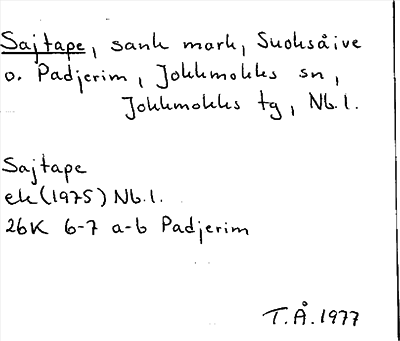 Sajtape, sank mark, Suoksåive
o. Padjerim, Jokkmokks sn,
Jokkmokks tg, Nb.l.
Sajtape
ek (1975) Nb.l.
26K 6-7 a-b Padjerim
T.Å. 1977